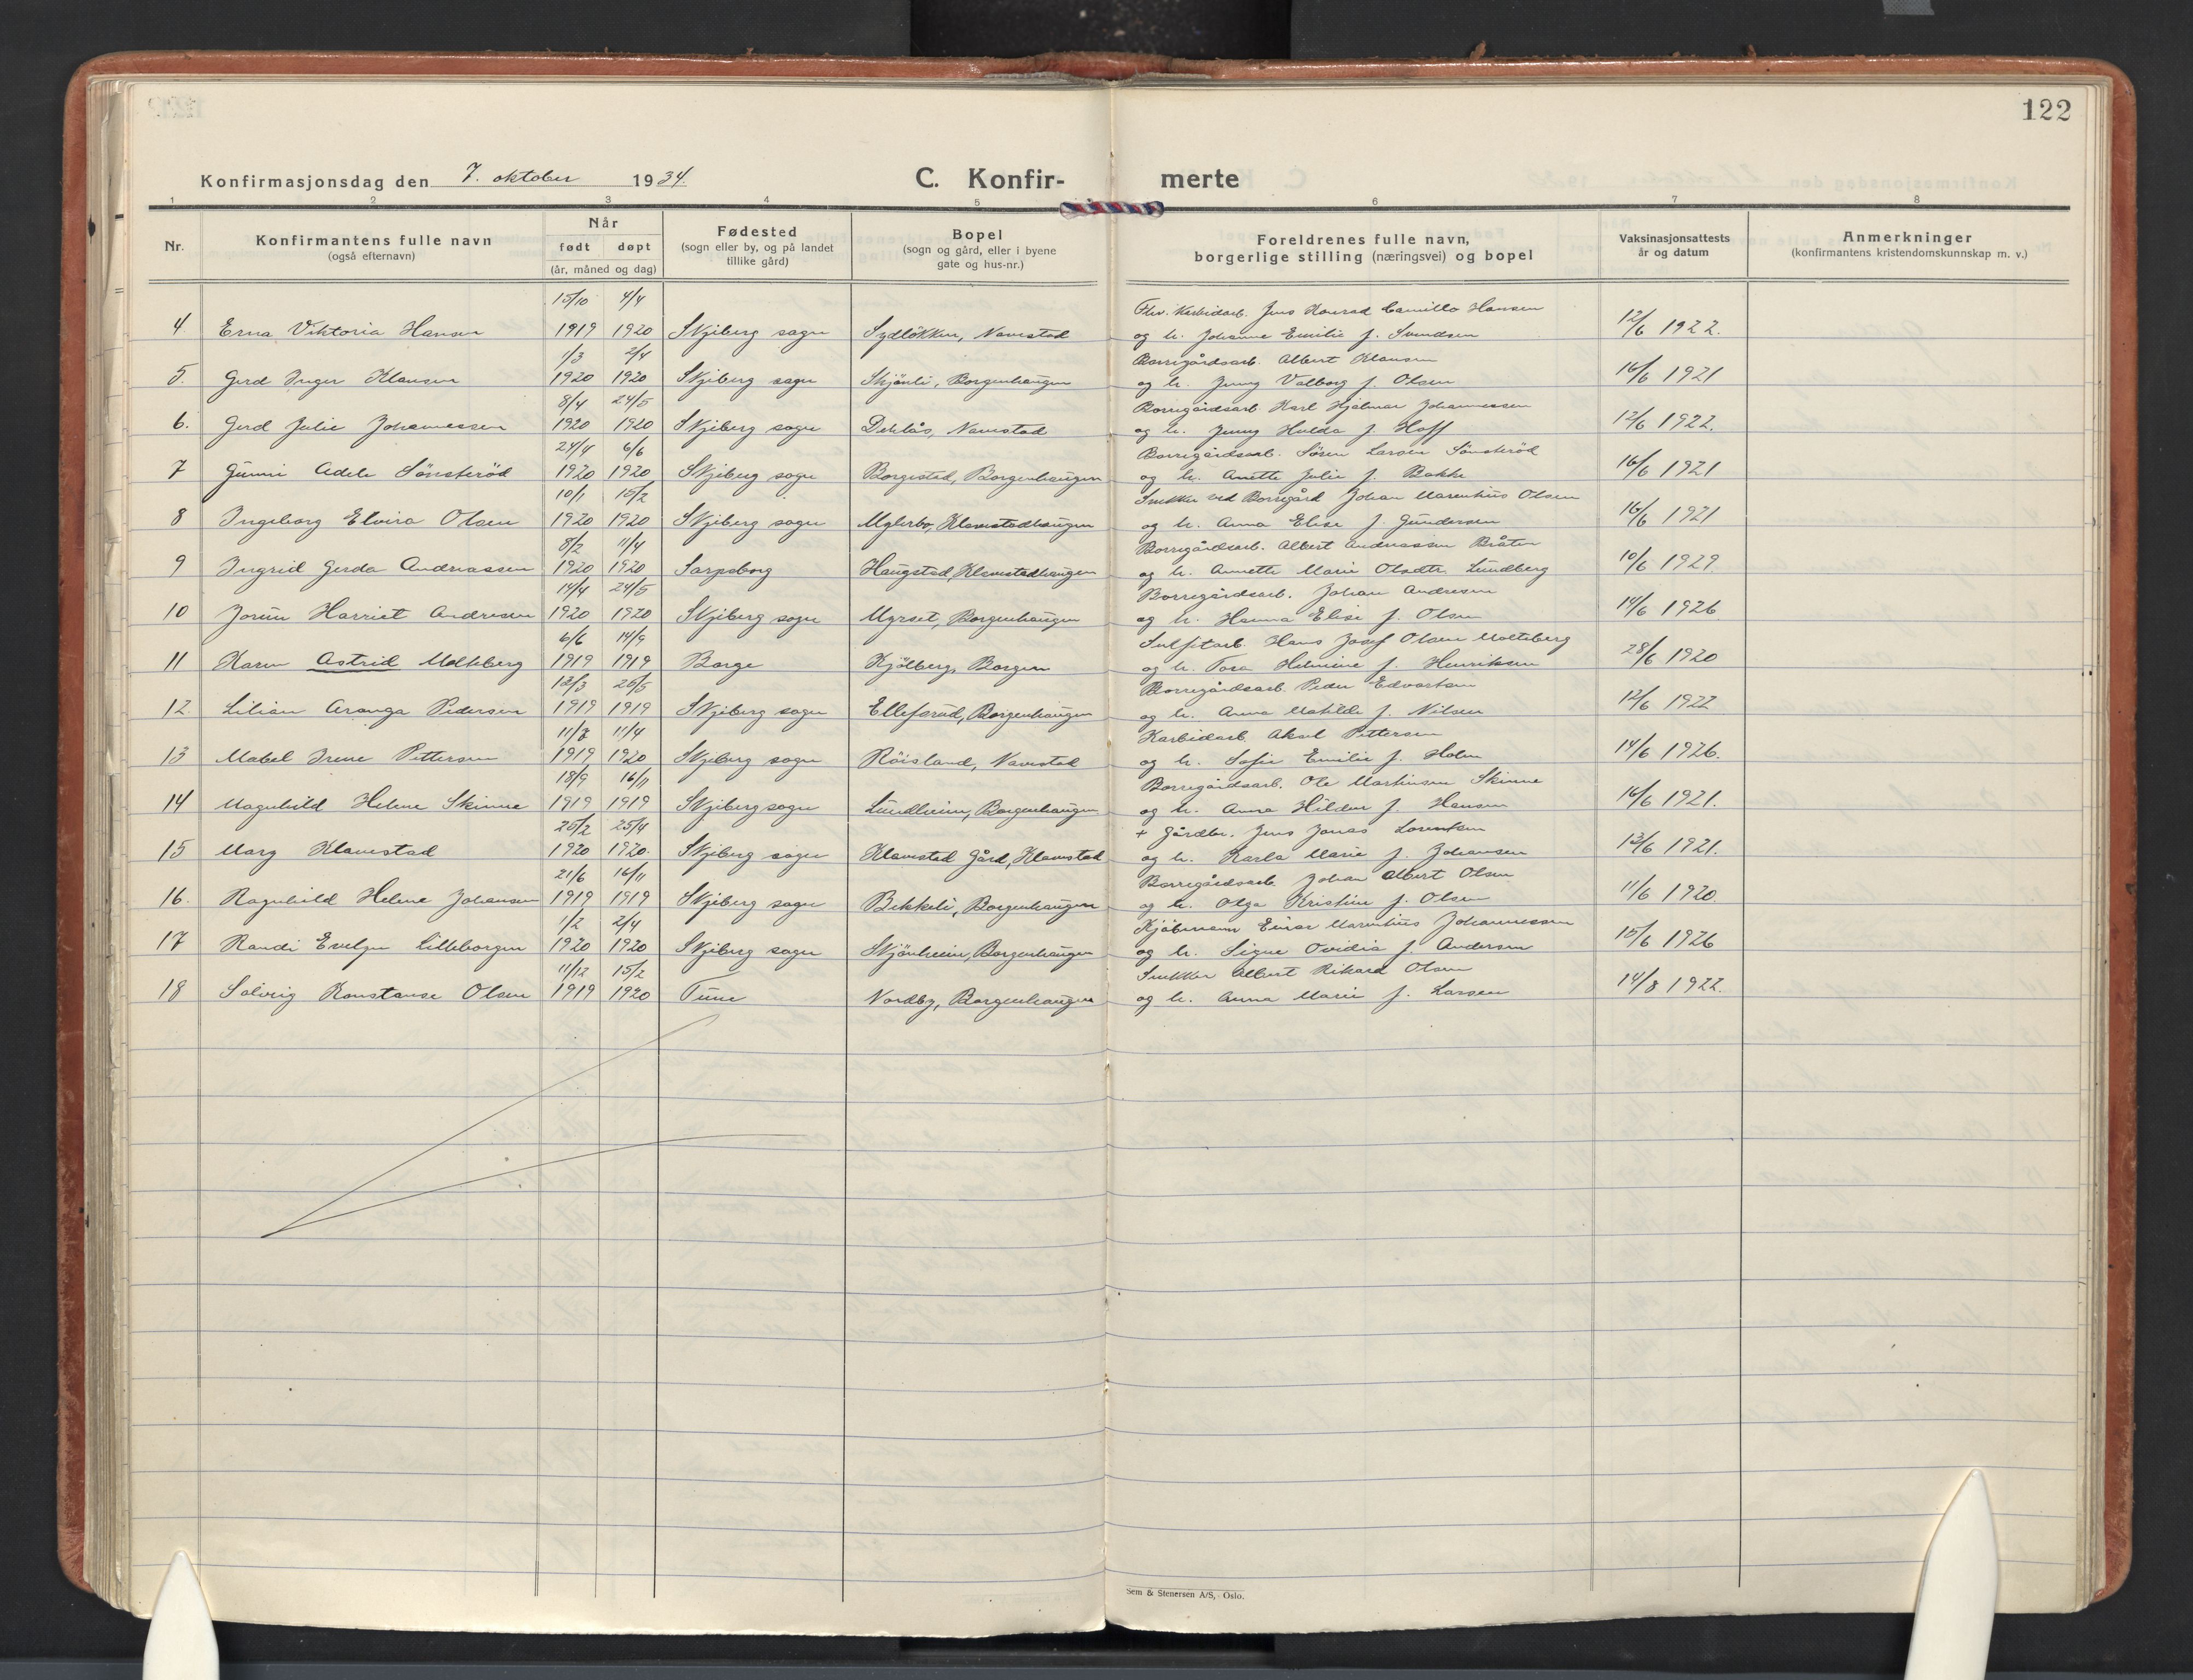 122
Konfirmasjonsdag den 7. oktober 1934.
C. Konfir- merte
1 2 3 4 5 6 7 8
Nr.
Konfirmantens fulle navn
(også efternavn)
Når
født døpt
(år, måned og dag)
Fødested
(sogn eller by, og på landet
tillike gård)
Bopel
(sogn og gård, eller i byene
gate og hus-nr.)
Foreldrenes fulle navn,
borgerlige stilling (næringsvei) og bopel
Vaksinasjonsattests
år og datum
Anmerkninger
(konfirmantens kristendomskunnskap m. v.)
15/10 4/4 Jens Konrad Camillo Hansen
4. Erna Viktoria Hansen 1919 1920 Skjeberg sogn Sydløkken, Navestad og h. Johanne Emilie f. Svendsen 12/6 1922.
1/3 2/4 Borregårdsarb. Albert Klausen
5. Gerd Inger Klausen 1920 1920 Skjeberg sogn Skjønli, Borgenhaugen og h. Jenny Valborg f. Olsen 16/6 1921
8/4 24/5 Borregårdsarb. Karl Hjalmar Johannessen
6. Gerd Julie Johannessen 1920 1920 Skjeberg sogn Deklås, Navestad og h. Jenny Hulda f. Hoff 12/6 1922.
24/4 6/6 Borregårdsarb. Søren Larsen Sønsterød
7 Gunni Adele Sønsterød 1920 1920 Skjeberg sogn Borgestad, Borgenhaugen og h. Anette Julie f. Bakke 16/6 1921
10/1 15/2 Snekker ved Borregård Johan Marentius Olsen
8 Ingeborg Elvira Olsen 1920 1920 Skjeberg sogn Myhrbo, Klavestadhaugen og h. Anna Elise f. Gundersen 16/6 1921
8/2 11/4 Borregårdsarb. Albert Andreassen Bråten
9 Ingrid Gerda Andreassen 1920 1920 Sarpsborg Haugstad, Klavestadhaugen og h. Annette Marie Olsdtr. Lundberg 10/6 1929.
14/4 24/5 Borregårdsarb. Johan Andresen
10 Jorun Harriet Andresen 1920 1920 Skjeberg sogn Myrset, Borgenhaugen og h. Hanna Elise f. Olsen 14/6 1926
6/6 14/9 Sulfitarb. Hans Josef Olsen Molteberg
11 Karen Astrid Molteberg 1919 1919 Borge Kjølberg, Borgen og h. Tora Helmine f. Henriksen 28/6 1920
13/3 25/5 Borregårdsarb. Peder Edvartsen
12. Lilian Aranga Pedersen 1919 1919 Skjeberg sogn Ellefsrud, Borgenhaugen og h. Anna Matilde f. Nilsen 12/6 1922
11/4 Karbidarb. Aksel Pettersen
13 Mabel Irene Pettersen 1919 1920 Skjeberg sogn Røisland, Navestad og h. Sofie Emilie f. Holm 14/6 1926.
18/9 16/11 Borregårdsarb. Ole Martinsen Skinne
14 Magnhild Helene Skinne 1919 1919 Skjeberg sogn Lundheim, Borgenhaugen og h. Anna Hildur f. Hansen 16/6 1921.
25/2 25/4 + Gårdbr. Jens Jonas Lorentsen
15 Mary Klavestad 1920 1920. Skjeberg sogn Klavestad gård, Klavestad og h. Karla Marie f. Johansen 13/6 1921.
21/6 16/11 Borregårdsarb. Johan Albert Olsen
16. Ragnhild Helene Johansen 1919 1919 Skjeberg sogn Bekkeli, Borgenhaugen og h. Olga Kristine f. Olsen 11/6 1920.
1/2 2/4 Kjøbmann Einar Marentius Johannessen
17 Randi Evelyn Lilleborgen 1920 1920 Skjeberg sogn Skjønheim, Borgenhaugen og h. Signe Ovidia f. Andersen 15/6 1926
11/12 15/2 Snekker Albert Rikard Olsen
18 Solveig Konstanse Olsen 1919 1920 Tune Nordby, Borgenhaugen og h. Anna Marie f. Larsen 14/8 1922.
Sem & Stenersen A/S, Oslo.